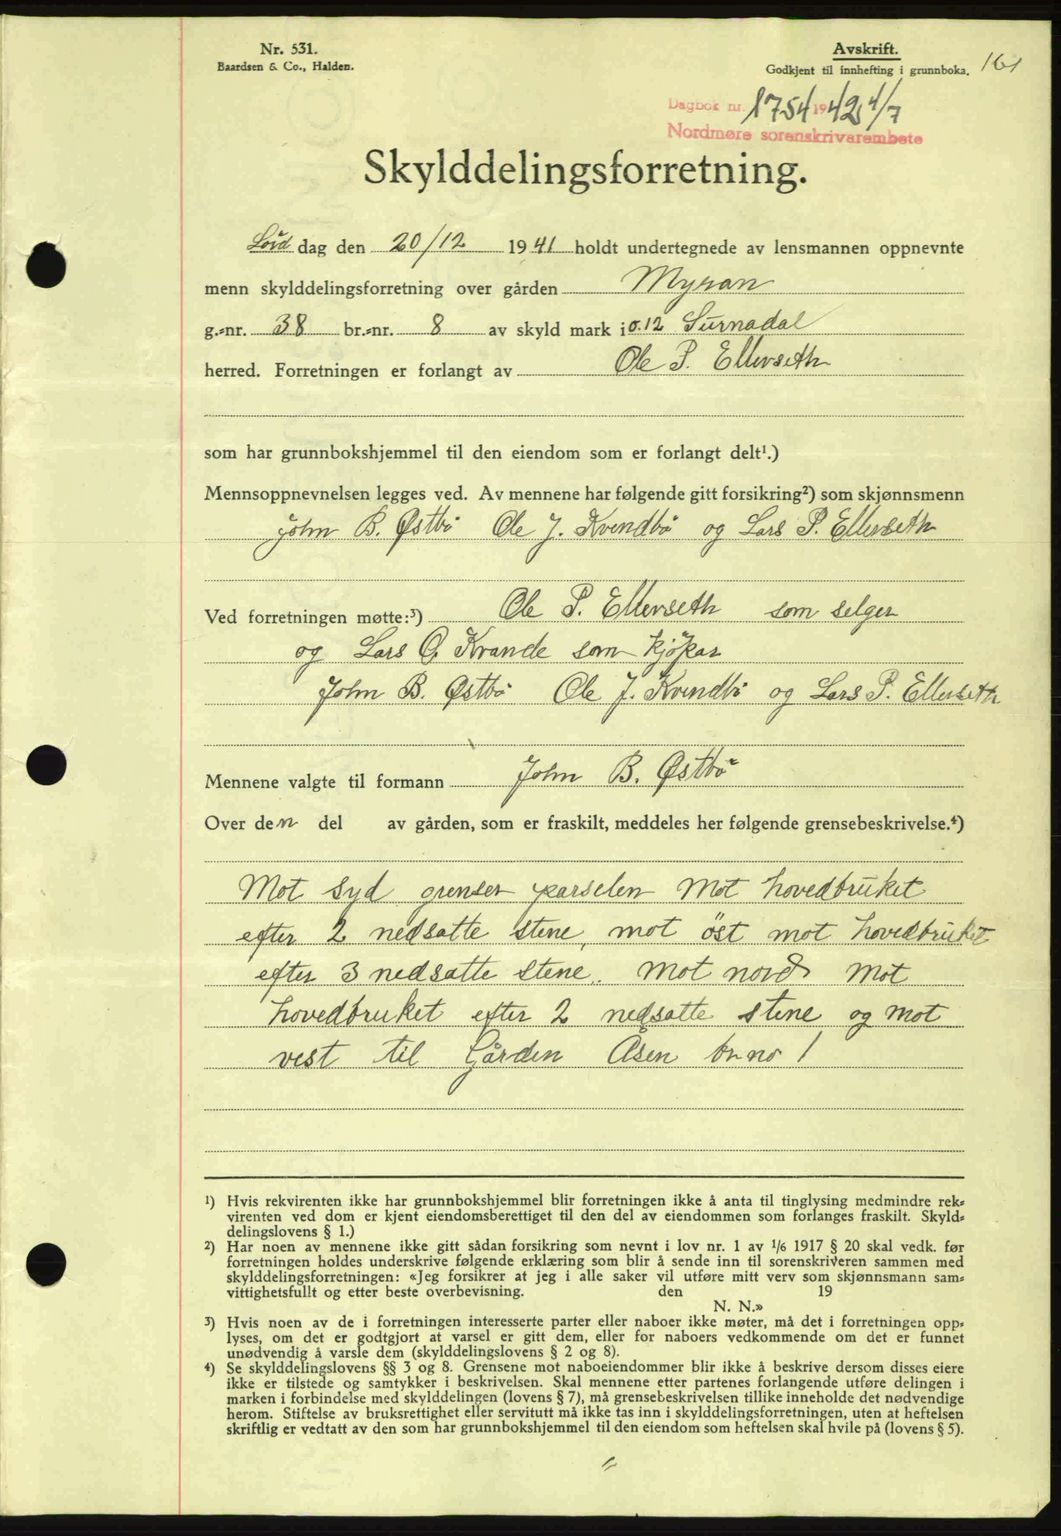 Nr. 531.
Baardsen & Co., Halden.
Avskrift.
Godkjent til innhefting i grunnboka.
161
Dagbok nr. 1754 1942 4/7
Nordmøre sorenskrivarembete
Skylddelingsforretning.
Lørd dag den 20/12 1941 holdt undertegnede av lensmannen oppnevnte
menn skylddelingsforretning over gården Myran
g.-nr. 38 br.-nr. 8 av skyld mark 0.12 i Surnadal
herred. Forretningen er forlangt av Ole P. Ellevseth
som har grunnbokshjemmel til den eiendom som er forlangt delt¹.)
Mennsoppnevnelsen legges ved. Av mennene har følgende gitt forsikring²) som skjønnsmenn
John B. Østbö Ole J. Kvendbö og Lars P. Ellevseth
Ved forretningen møtte:³) Ole P. Ellevseth som selger
og Lars O. Kvande som kjöpar
John B. Østbö Ole J. Kvendbö og Lars P. Ellevseth
Mennene valgte til formann John B. Østbö
Over den del av gården, som er fraskilt, meddeles her følgende grensebeskrivelse.⁴)
Mot syd grenser parselen mot hovedbruket
efter 2 nedsatte stene, mot öst mot hovedbruket
efter 3 nedsatte stene. Mot nord mot
hovedbruket efter 2 nedsatte stene og mot
vest til Gården Åsen br no 1
¹) Hvis rekvirenten ikke har grunnbokshjemmel blir forretningen ikke å anta til tinglysing medmindre rek-
virenten ved dom er kjent eiendomsberettiget til den del av eiendommen som forlanges fraskilt. Skyld-
delingslovens § 1.)
²) Har noen av mennene ikke gitt sådan forsikring som nevnt i lov nr. 1 av 1/6 1917 § 20 skal vedk. før
forretningen holdes underskrive følgende erklæring som blir å sende inn til sorenskriveren sammen med
skylddelingsforretningen: «Jeg forsikrer at jeg i alle saker vil utføre mitt verv som skjønnsmann sam-
vittighetsfullt og etter beste overbevisning. den 19
N. N.»
³) Hvis noen av de i forretningen interesserte parter eller naboer ikke møter, må det i forretningen opp-
lyses, om det er godtgjort at varsel er gitt dem, eller for naboers vedkommende om det er funnet
unødvendig å varsle dem (skylddelingslovens § 2 og 8).
⁴) Se skylddelingslovens §§ 3 og 8. Grensene mot naboeiendommer blir ikke å beskrive dersom disses eiere
ikke er tilstede og samtykker i beskrivelsen. Skal mennene etter partenes forlangende utføre delingen i
marken i forbindelse med skylddelingen (lovens § 7), må grensebeskrivelsen tillike inneholde det nødvendige
herom. Stiftelse av bruksrettighet eller servitutt må ikke tas inn i skylddelingsforretningen, uten at heftelsen
skriftlig er vedtatt av den som har grunnbokshjemmel til den eiendom som heftelsen skal hvile på (lovens § 5).